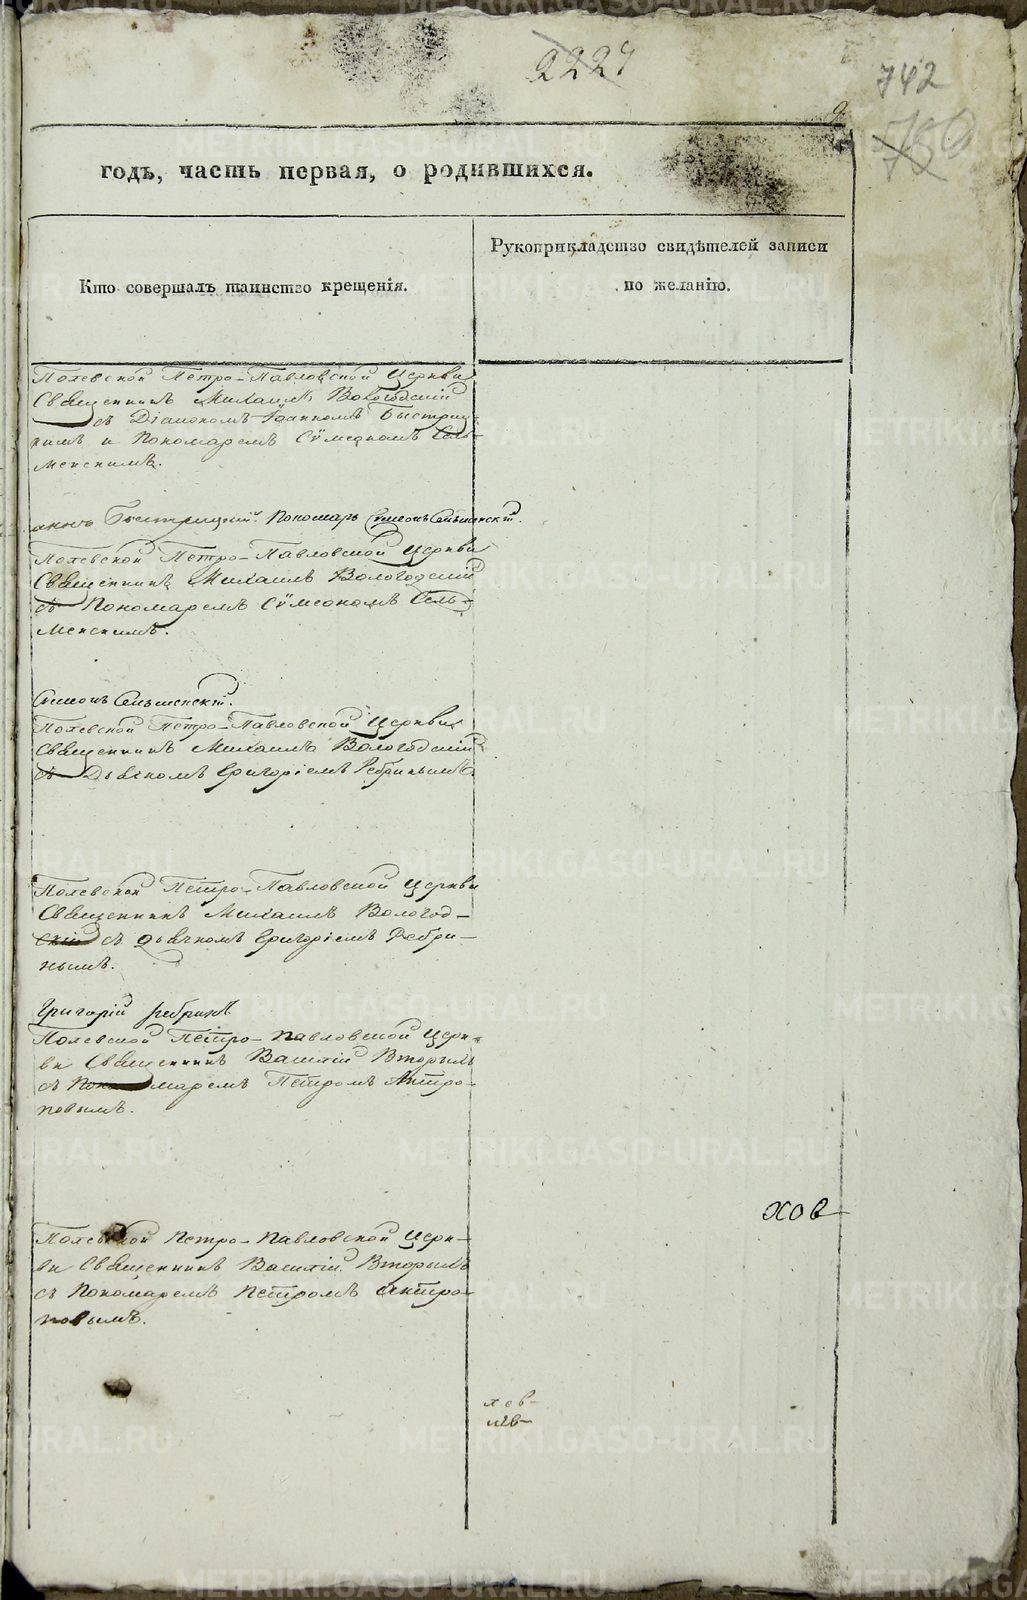 2224
742
годъ, часть первая, о родившихся.
Кто совершалъ таинство крещенія.
Рукоприкладство свидѣтелей записи
по желанію.
Полевской Петро-Павловской Церкви
Священникъ Михаилъ Вологодскій
съ Діакономъ Іоанномъ Быстриц-
кимъ и Пономаремъ Сѵмеономъ Сель-
менскимъ.
Быстрицкій. Пономарь Симеонъ Сельменскій.
Полевской Петро-Павловской Церкви
Священникъ Михаилъ Вологодскій
съ Пономаремъ Сѵмеономъ Сель-
менскимъ.
Симеонъ Сельменскій.
Полевской Петро-Павловской Церкви
Священникъ Михаилъ Вологодскій
съ Дьячкомъ Григоріемъ Ребринымъ
Полевской Петро-Павловской Церкви
Священникъ Михаилъ Вологод-
скій съ дьячкомъ Григоріемъ Ребри-
нымъ.
Григорій Ребринъ
Полевской Петро-Павловской Церк-
ви Священникъ Василій Вторыхъ
съ Пономаремъ Петромъ Антро-
повымъ.
Полевской Петро-Павловской Церк-
ви Священникъ Василій Вторыхъ
съ Пономаремъ Петромъ Антро-
повымъ.
ков-
METRIKI.GASO-URAL.RU